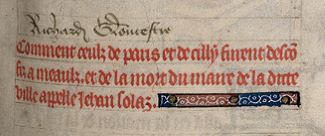 Richard Gloucestre
Comment ceulx de paris et de cilly furent desco
fiz a meaulx. et de la mort du maire de la ditte
ville appelle Jehan solaz.